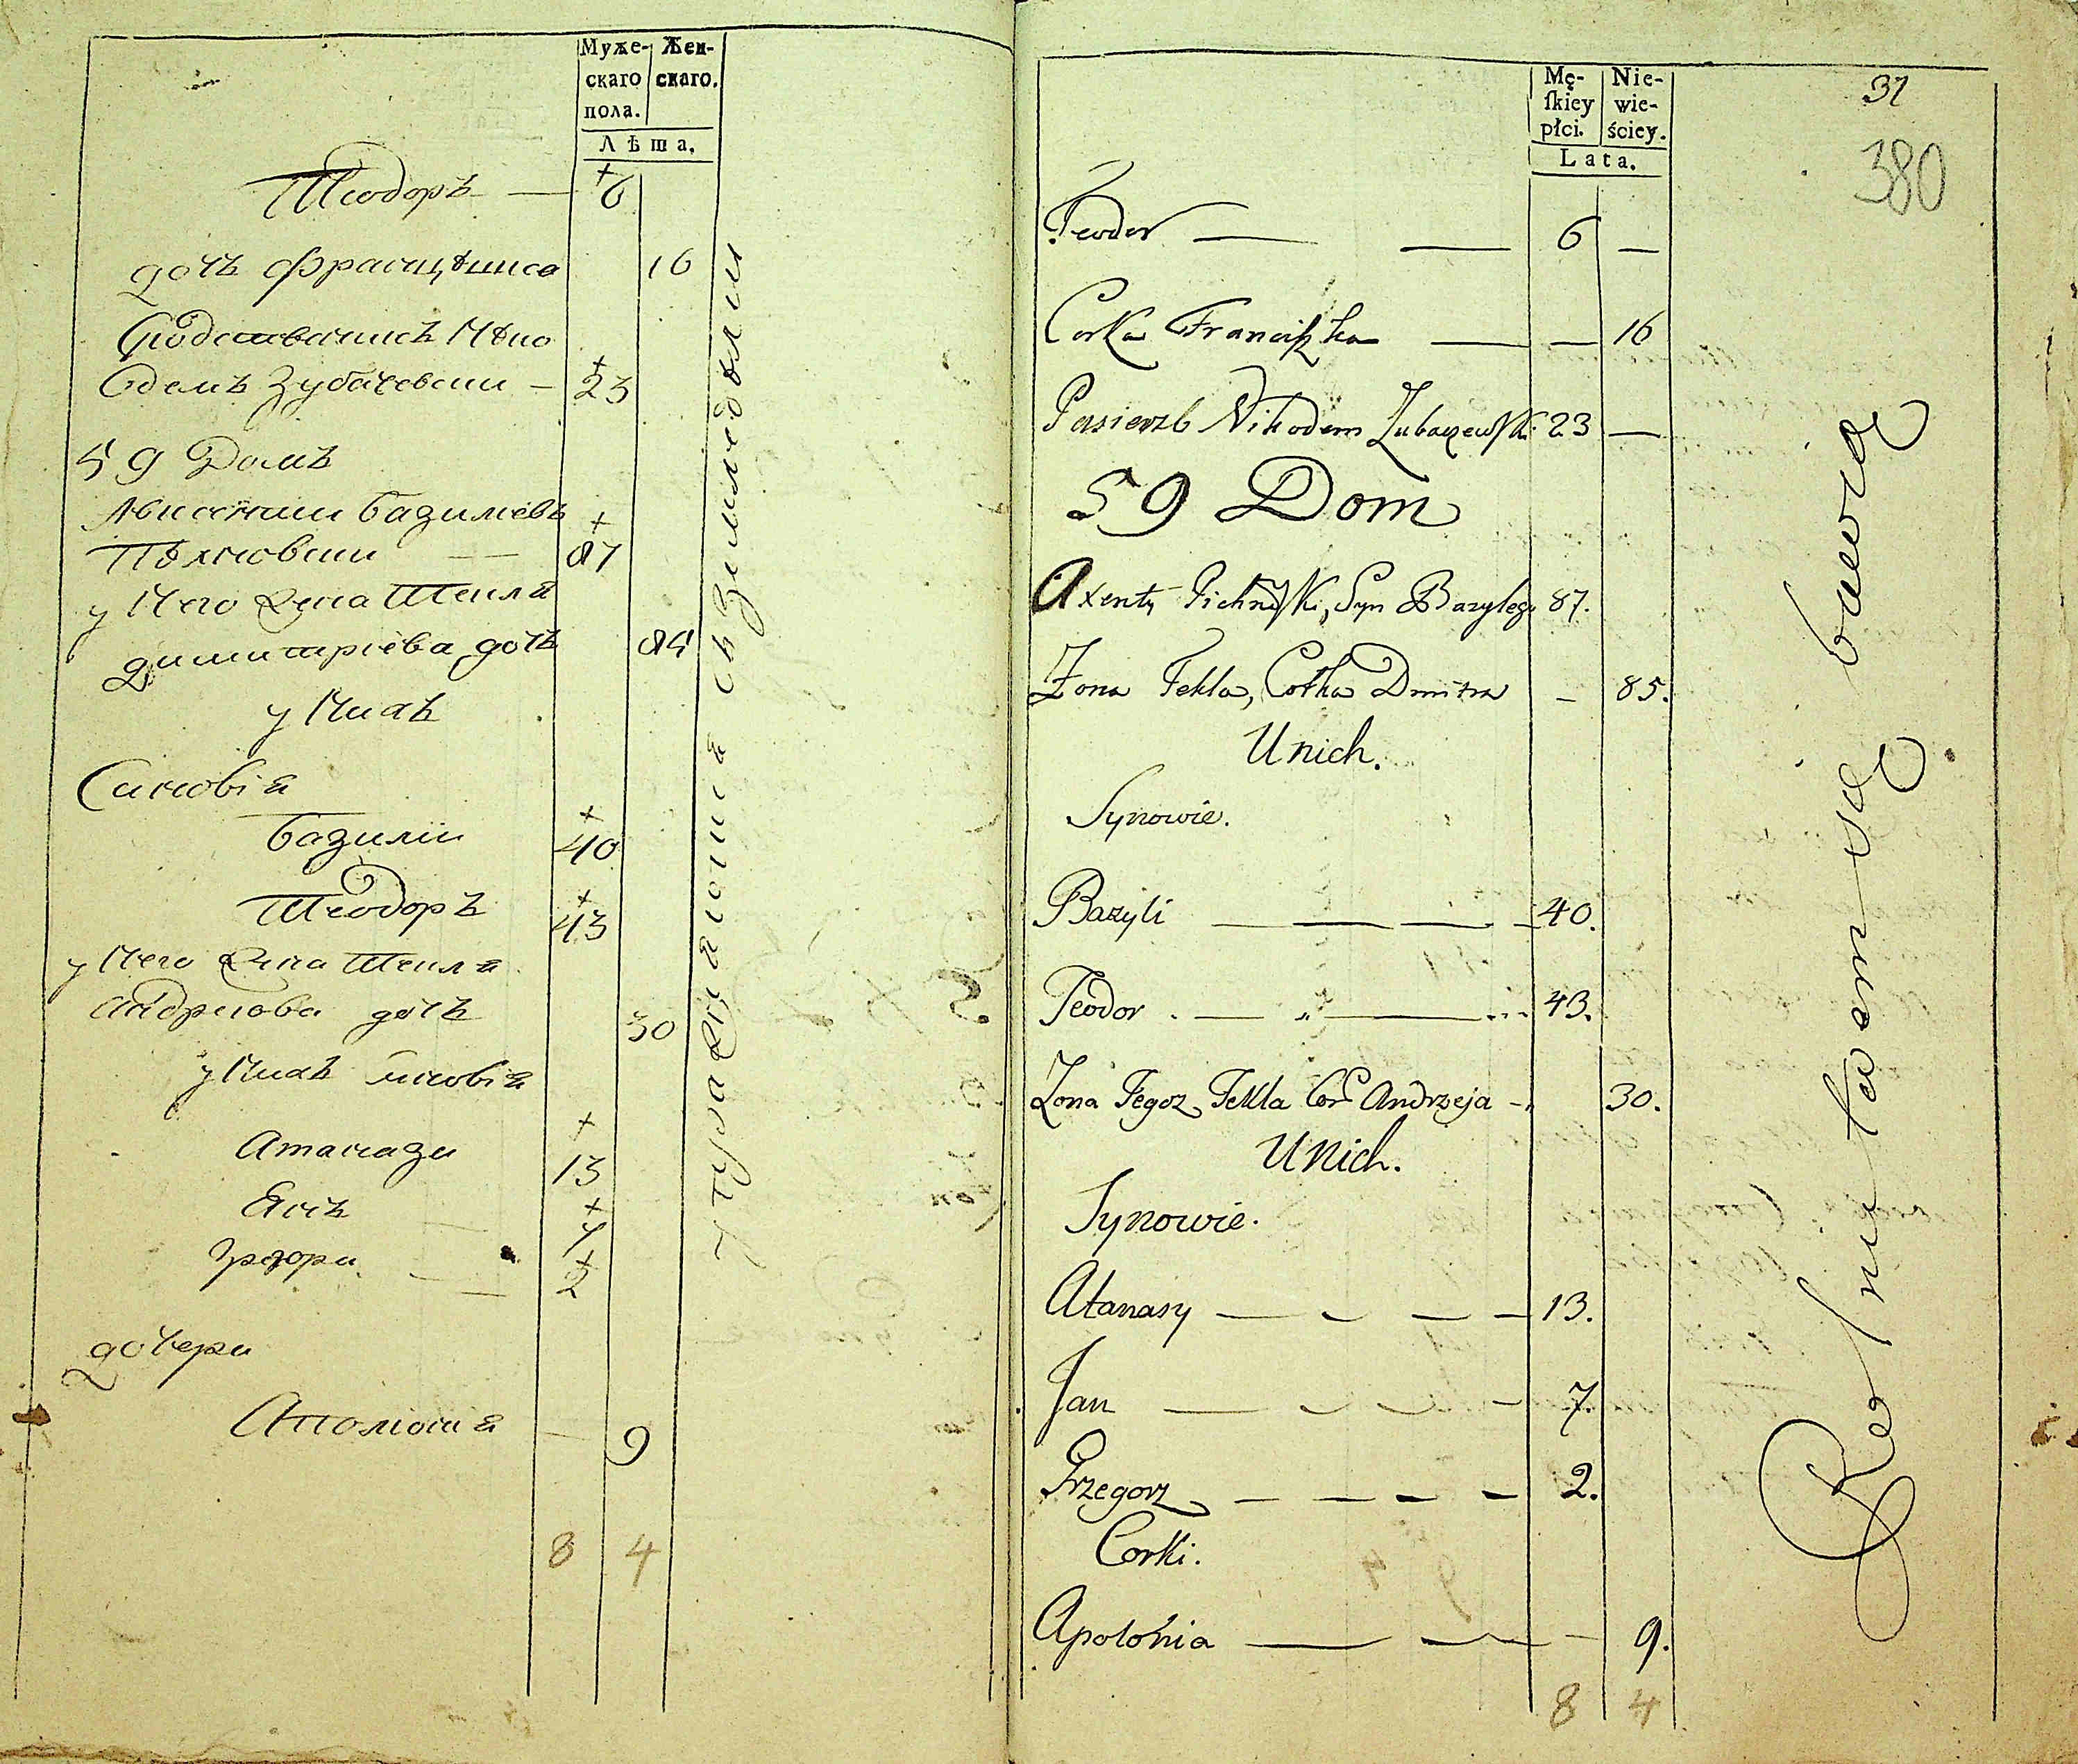 Муже-
скаго
пола.
Жен-
скаго.
Лѣта.
Теодоръ — 6
дочь Францѣшка 16
Одемъ Зубачевски — 23
59 Домъ
Авксенти Базилиевъ
Пѣхновски — 87
у Него Жена Текля
Димитріева дочь 85
у Нихъ
Синовія
Базилii 40
Теодоръ 43
у Него Жена Текля
Андриова дочь 30
у Нихъ синовія
Атанази 13
Янъ 7
Грегори 2
дочери
Аполония — 9
8 4
Mę-
ſkiey
płci.
Nie-
wie-
ściey.
Lata.
31
380
Teodor — — 6 —
Corka Franciszka — — 16
Pasierzb Nikodem Zubaczewski 23 —
59 Dom
Axenty Pichnowski, Syn Bazylego 87.
Zona Tekla, Corka Dmitra — 85.
U nich.
Synowie.
Bazyli — — — — 40.
Teodor — — 43.
Zona Tegoz Tekla Cor Andrzeja — 30.
U Nich.
Synowie.
Atanasy — — — — 13.
Jan — — — — 7.
Grzegorz — — — — 2.
Corki.
Apolonia — — — 9.
8 4